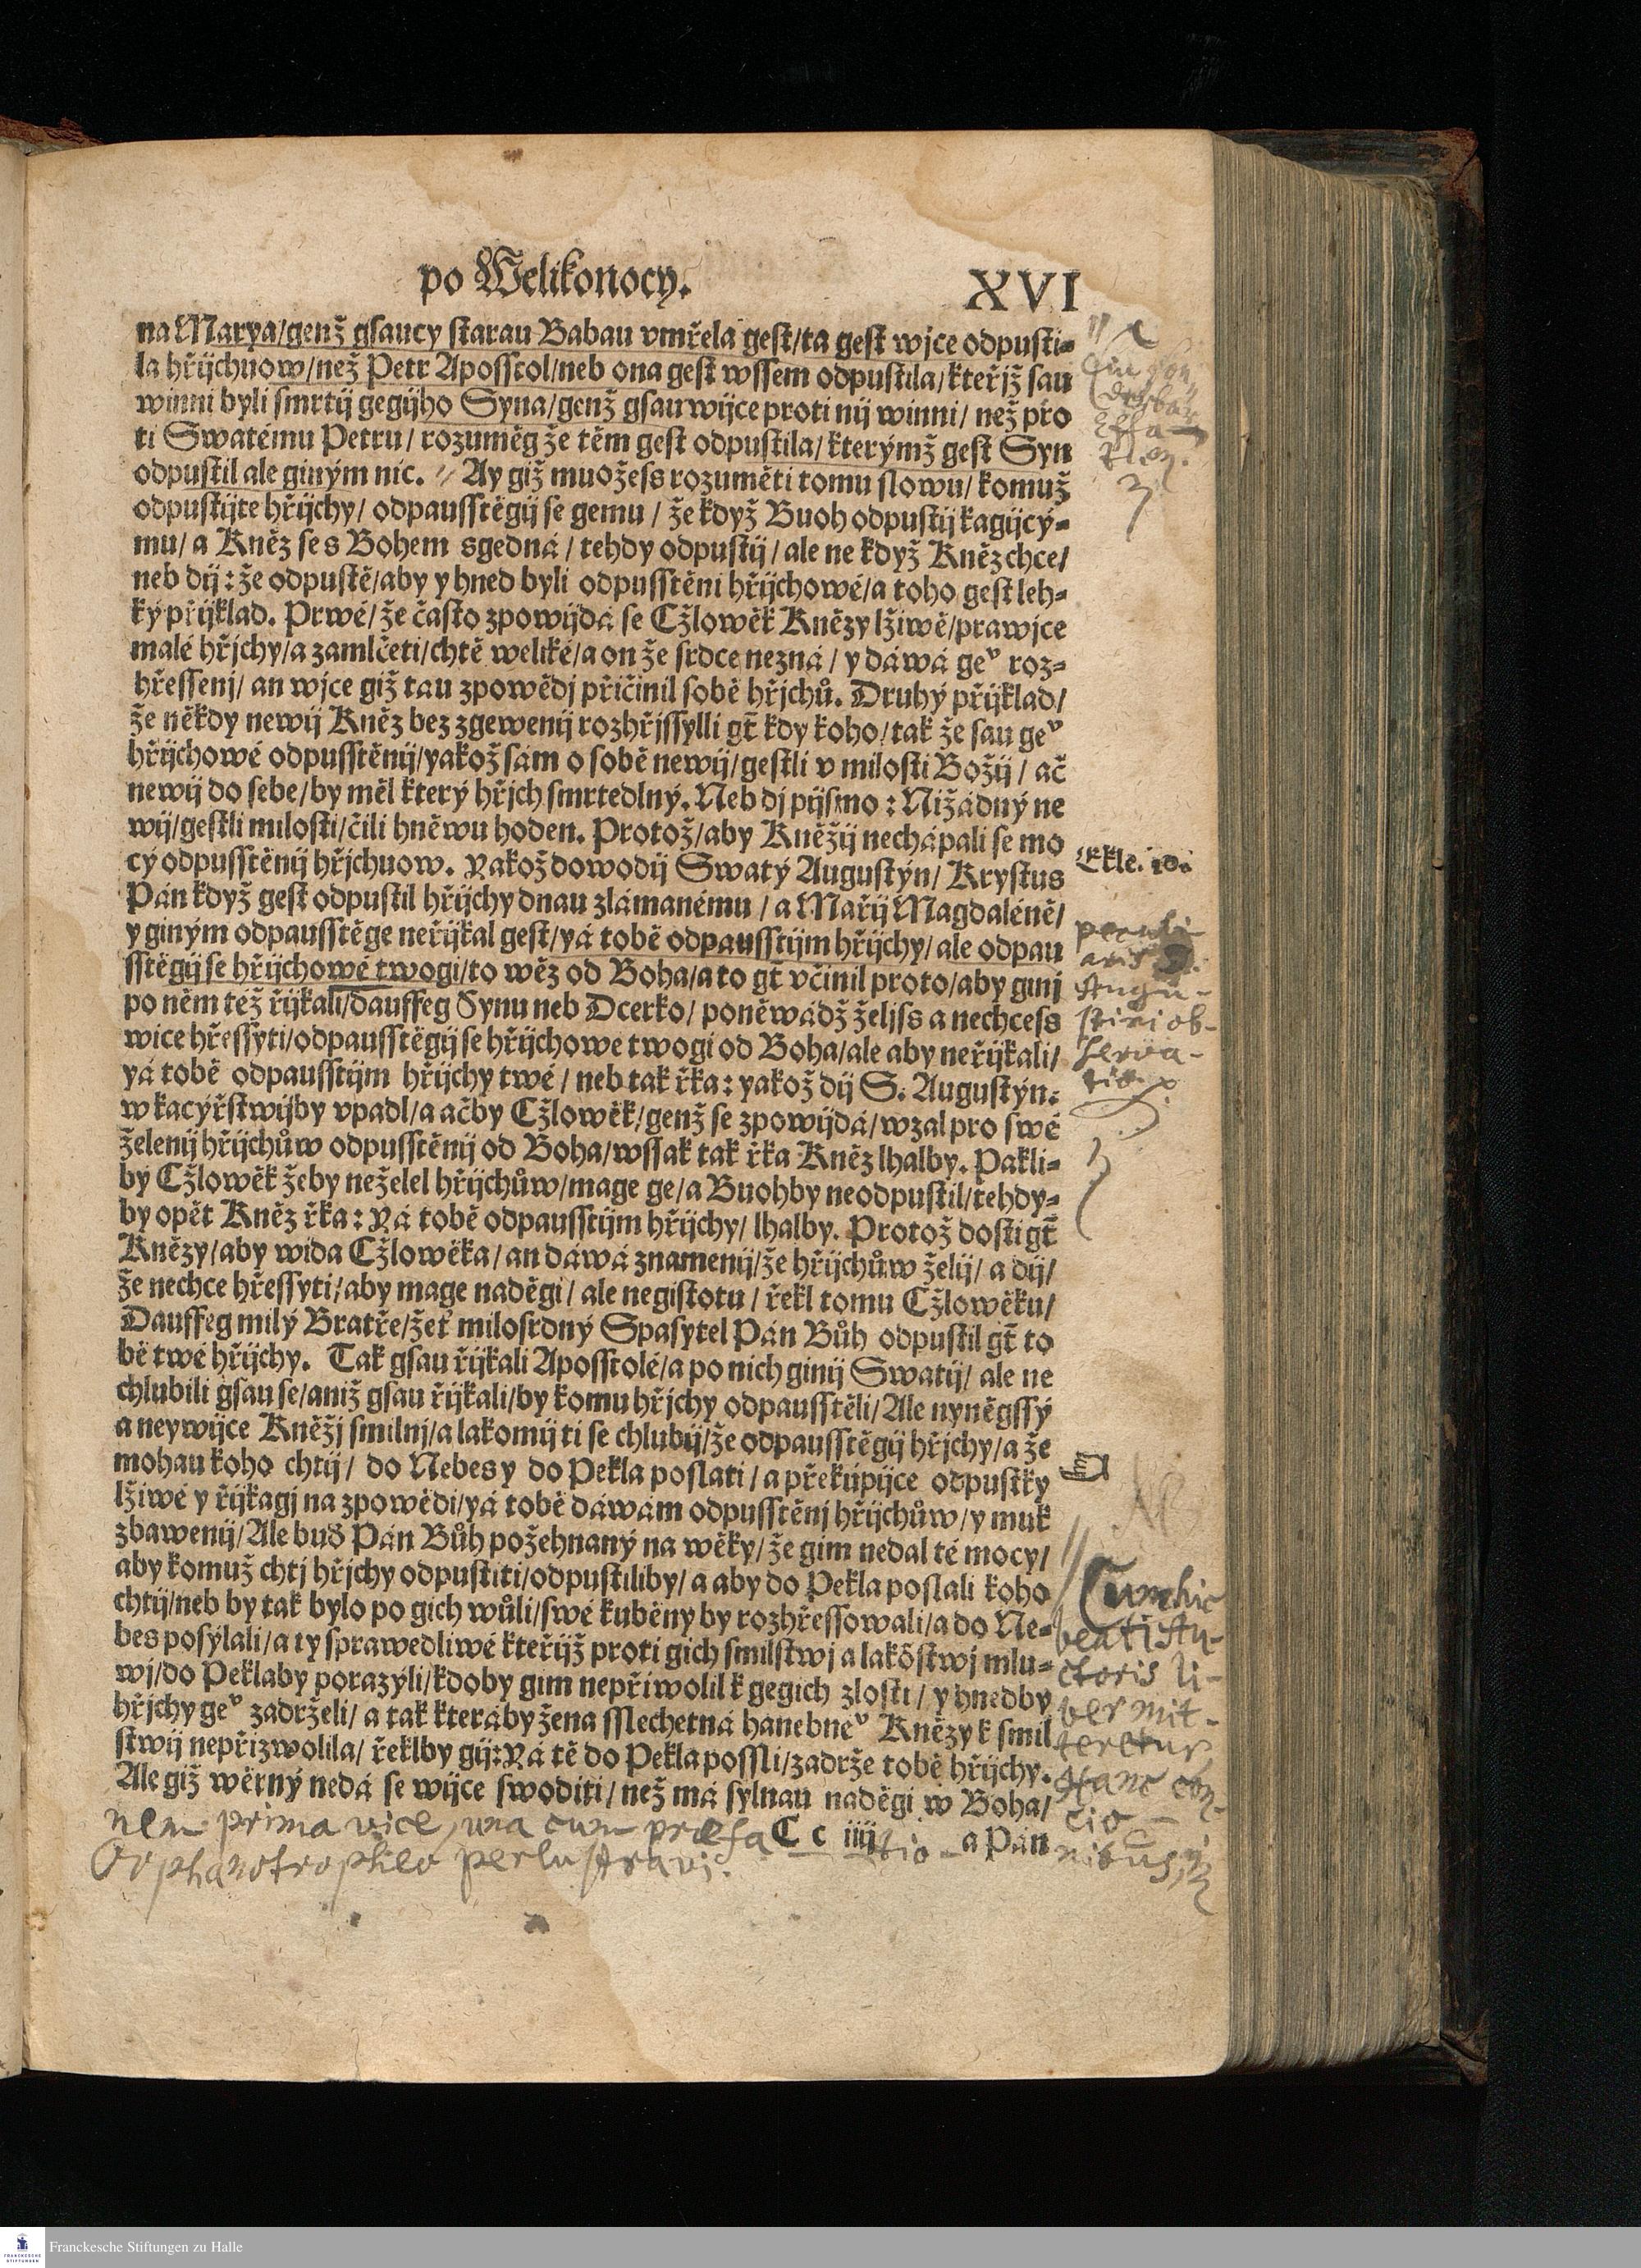 po Welikonocy. XVI
na Marya/genž gsaucy starau Babau vmřela gest/ta gest wjce odpusti-
la hřijchuow/než Petr Aposstol/neb ona gest wssem odpustila/kteřjž sau
winni byli smrtij gegijho Syna/genž gsau wijce proti nij winni/ než pro
ti Swatému Petru/ rozuměg že těm gest odpustila/kterýmž gest Syn
odpustil ale giným nic. // Ay giž muožess rozuměti tomu slowu/ komuž
odpustijte hřijchy/ odpausstěgij se gemu / že když Buoh odpustij kagijcý-
mu/ a Kněz se s Bohem sgedná / tehdy odpustij / ale ne když Kněz chce/
neb dij: že odpustě/aby y hned byli odpusstěni hřijchowé/a toho gest leh-
ký přijklad. Prwé/ že často zpowijdá se Cžlowěk Knězy lžiwě/prawjce
malé hřjchy/a zamlčeti/chtě weliké/a on že srdce nezná / y dáwá geᵛ roz-
hřessenj/ an wjce giž tau zpowědj přičinil sobě hřjchů. Druhý přijklad/
že někdy newij Kněz bez zgewenij rozhřjssylli gt̄ kdy koho/tak že sau geᵛ
hřijchowé odpusstěnij/yakož sám o sobě newij/gestli v milosti Božij / ač
newij do sebe/by měl který hřjch smrtedlný. Neb dj pijsmo: Nižádný ne
wij/gestli milosti/čili hněwu hoden. Protož/aby Kněžij nechápali se mo
cý odpusstěnij hřjchuow. Yakož dowodij Swatý Augustýn/ Krystus
Ekle. 10.
Pán když gest odpustil hřijchy dnau zlámanému / a Mařij Magdaléně/
y giným odpausstěge neřijkal gest/yá tobě odpausstijm hřijchy/ ale odpau
sstěgij se hřijchowé twogi/to wěz od Boha/a to gt̄ včinil proto/aby ginj
po něm též řijkali/dauffeg Synu neb Dcerko/ poněwádž željss a nechcess
wice hřessyti/odpausstěgij se hřijchowe twogi od Boha/ale aby neřijkali/
yá tobě odpausstijm hřijchy twé / neb tak řka: yakož dij S. Augustýn.
w kacýřstwijby vpadl/a ačby Cžlowěk/genž se zpowijdá/wzal pro swé
želenij hřijchůw odpusstěnij od Boha/wssak tak řka Kněz lhalby. Pakli-
by Cžlowěk žeby neželel hřijchůw/mage ge/a Buohby neodpustil/tehdy-
by opět Kněz řka: Yá tobě odpausstijm hřijchy/ lhalby. Protož dosti gt̄
Knězy/aby wida Cžlowěka/an dáwá znamenij/že hřijchůw želij/ a dij/
že nechce hřessyti/aby mage naděgi/ ale negistotu / řekl tomu Cžlowěku/
Dauffeg milý Bratře/žeť milosrdný Spasytel Pán Bůh odpustil gt̄ to
bě twé hřijchy. Tak gsau řijkali Aposstolé/a po nich ginij Swatij/ ale ne
chlubili gsau se/aniž gsau řijkali/by komu hřjchy odpausstěli/Ale nyněgssý
a neywijce Kněžj smilnj/a lakomij ti se chlubij/že odpausstěgij hřjchy/a že
mohau koho chtij/ do Nebes y do Pekla poslati/a překúpijce odpustky
lžiwé y řijkagj na zpowědi/yá tobě dáwám odpusstěnj hřijchůw/y muk
zbawenij/Ale buď Pán Bůh požehnaný na wěky/že gim nedal té mocy/
aby komuž chtj hřjchy odpustiti/odpustiliby/a aby do Pekla poslali koho
chtij/neb by tak bylo po gich wůli/swé kuběny by rozhřessowali/a do Ne-
bes posýlali/a ty sprawedliwé kteřijž proti gich smilstwj a lakōstwj mlu-
wj/do Peklaby porazyli/kdoby gim nepřiwolil k gegich zlosti/ y hnedby
hřjchy geᵛ zadrželi/ a tak kteráby žena sslechetná hanebneᵛ Knězy k smil
stwij nepřizwolila/ řeklby gij: Yá tě do Pekla possli/zadrže tobě hřijchy.
Ale giž wěrný nedá se wijce swoditi/ než má sylnau naděgi w Boha/
C c iiij a Pán
Augu-
stini ob-
serva-
tio.
Cum hic
beati Au-
ctoris li-
ber mit-
teretur,
Hanc con-
cio-
nem prima vice, una cum præfa-
tio-
nibus, in
Orphanotropheo perlustravi.
Franckesche Stiftungen zu Halle